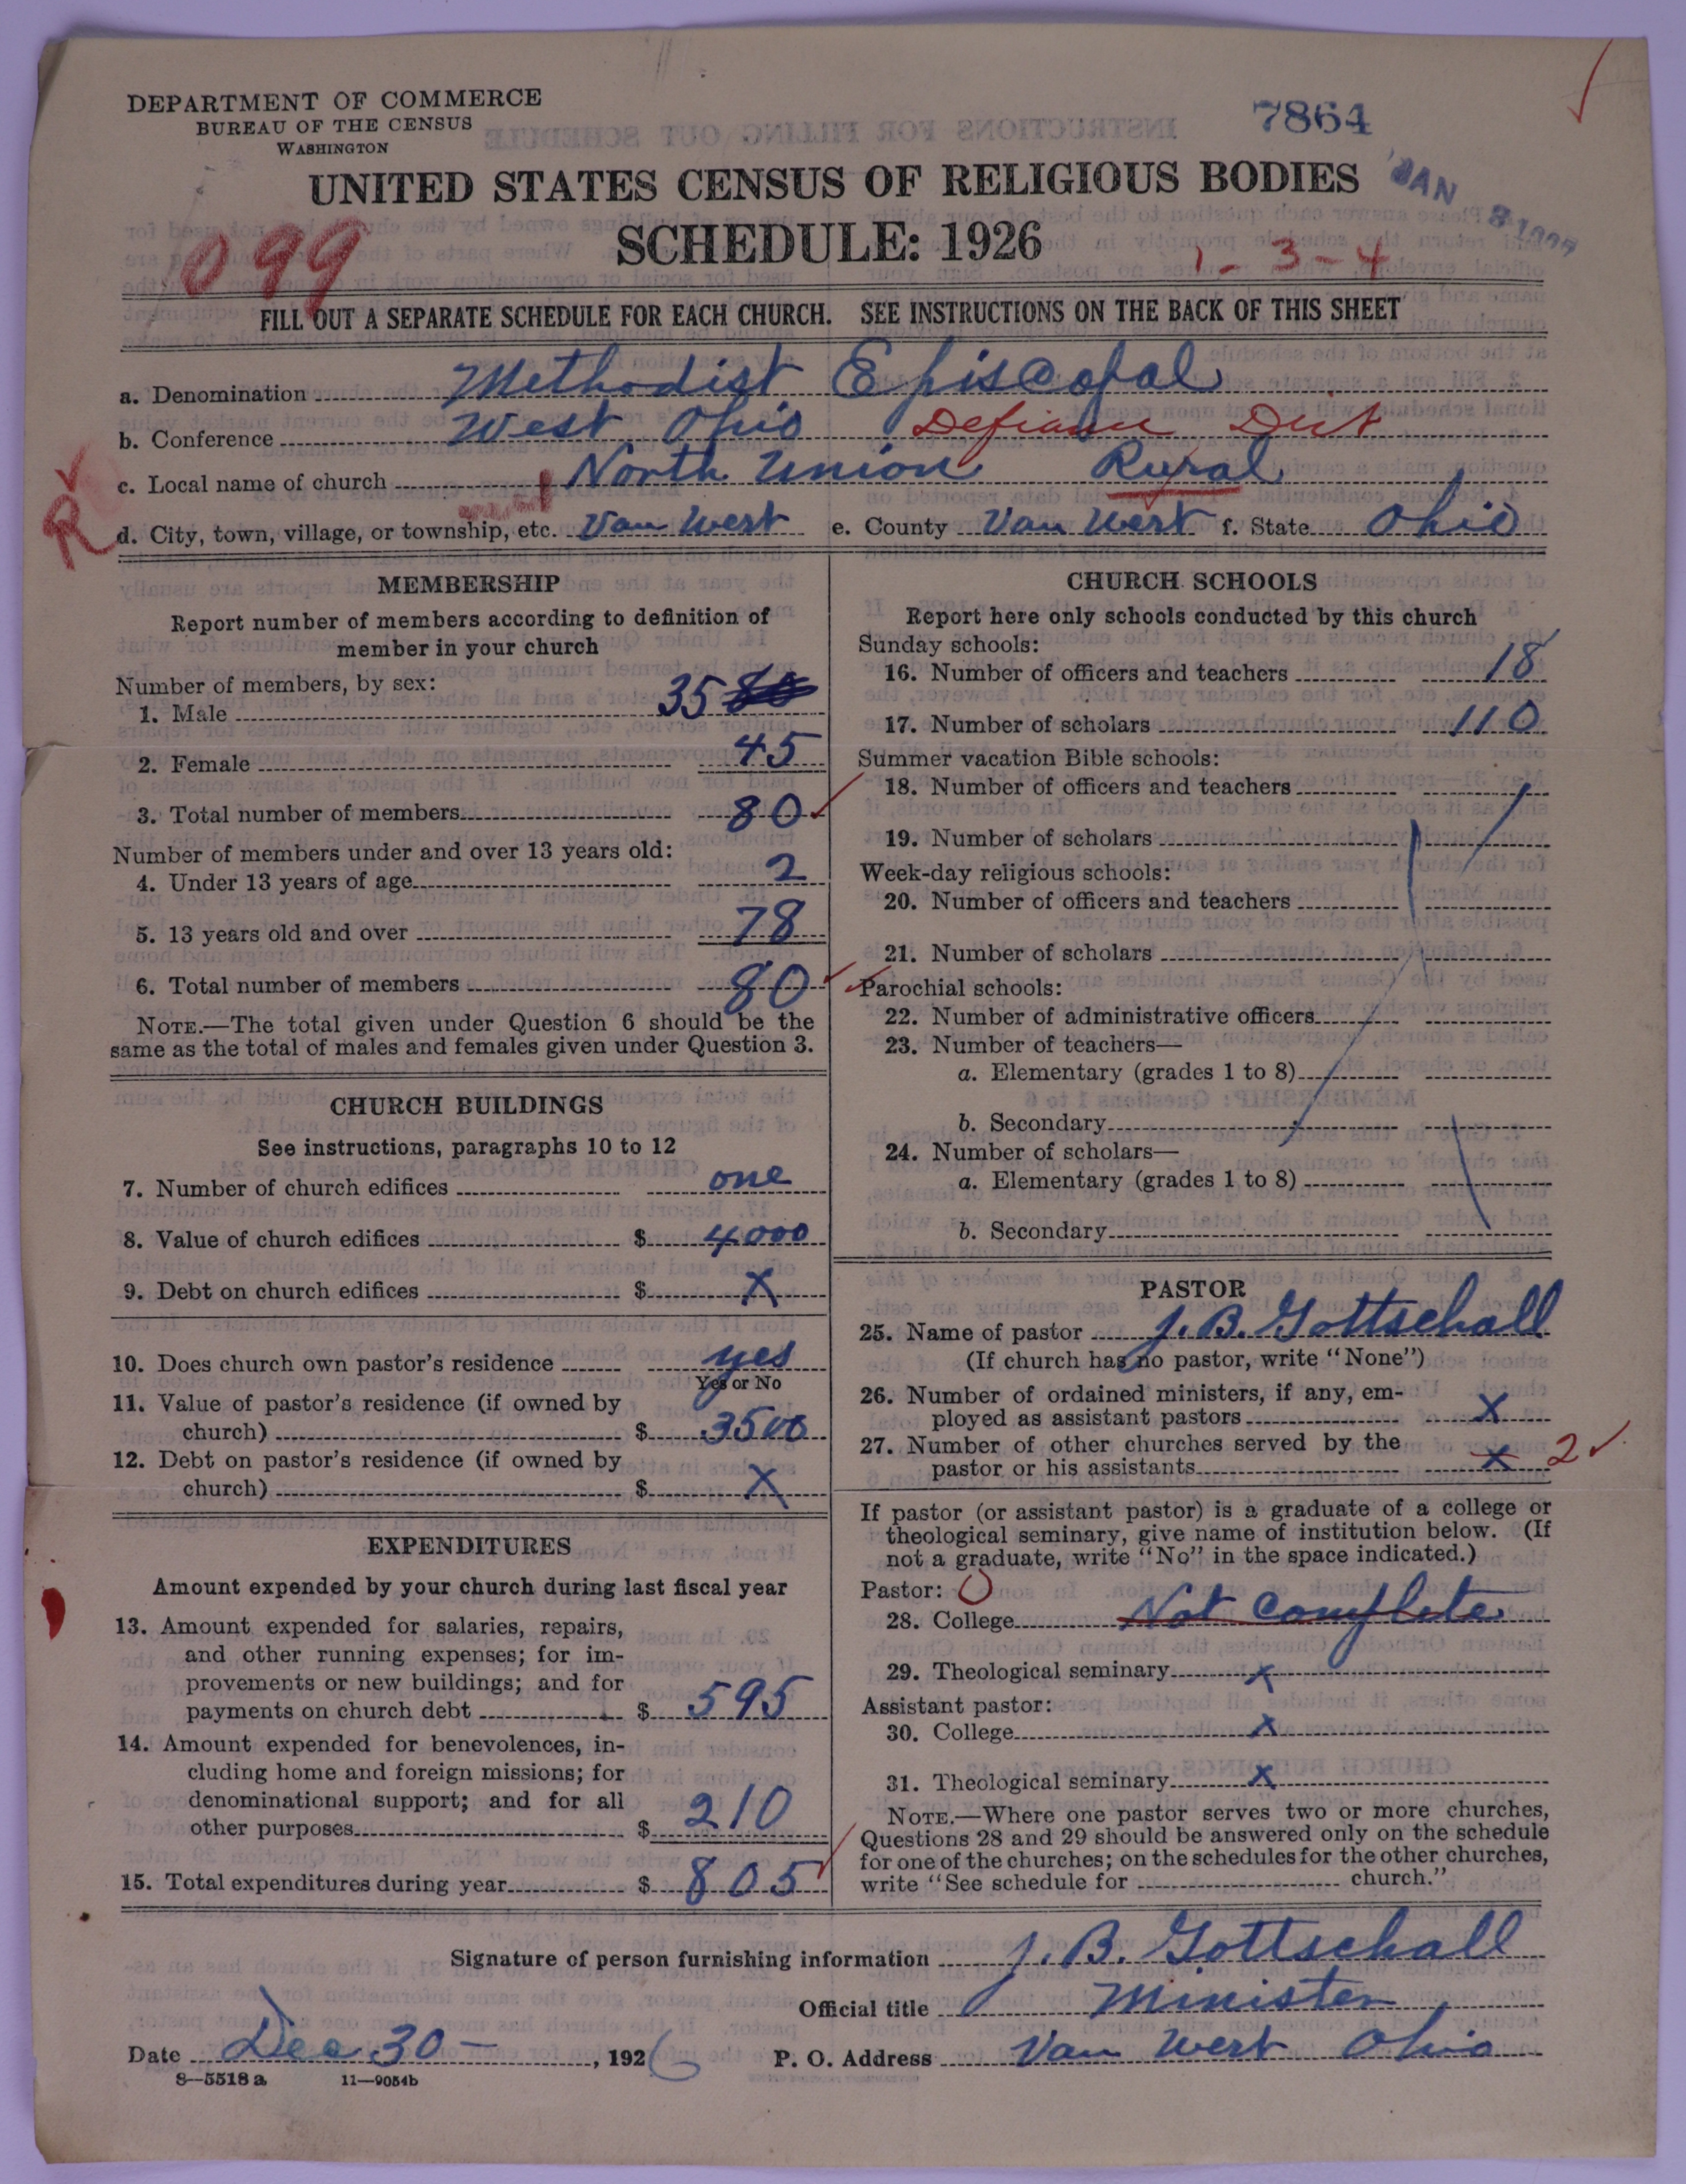 DEPARTMENT OF COMMERCE
BUREAU OF THE CENSUS
WASHINGTON
7864
UNITED STATES CENSUS OF RELIGIOUS BODIES
JAN
SCHEDULE: 1926
099
1-3-4
FILL OUT A SEPARATE SCHEDULE FOR EACH CHURCH. SEE INSTRUCTIONS ON THE BACK OF THIS SHEET
a. Denomination Methodist Episcopal
b. Conference West Ohio Defiance Dist
c. Local name of church North Union Rural
R d. City, town, village, or township, etc. Van Wert e. County Van Wert f. State Ohio
MEMBERSHIP
Report number of members according to definition of
member in your church
Number of members, by sex:
1. Male 35
2. Female 45
3. Total number of members 80
Number of members under and over 13 years old:
4. Under 13 years of age 2
5. 13 years old and over 78
6. Total number of members 80
NOTE.—The total given under Question 6 should be the
same as the total of males and females given under Question 3.
CHURCH BUILDINGS
See instructions, paragraphs 10 to 12
7. Number of church edifices one
8. Value of church edifices $ 4000
9. Debt on church edifices $ X
10. Does church own pastor's residence yes
Yes or No
11. Value of pastor's residence (if owned by
church) $ 3500
12. Debt on pastor's residence (if owned by
church) $ X
EXPENDITURES
Amount expended by your church during last fiscal year
13. Amount expended for salaries, repairs,
and other running expenses; for im-
provements or new buildings; and for
payments on church debt $ 595
14. Amount expended for benevolences, in-
cluding home and foreign missions; for
denominational support; and for all
other purposes $ 210
15. Total expenditures during year $ 805
CHURCH SCHOOLS
Report here only schools conducted by this church
Sunday schools:
16. Number of officers and teachers 18
17. Number of scholars 110
Summer vacation Bible schools:
18. Number of officers and teachers
19. Number of scholars
Week-day religious schools:
20. Number of officers and teachers
21. Number of scholars
Parochial schools:
22. Number of administrative officers
23. Number of teachers—
a. Elementary (grades 1 to 8)
b. Secondary
24. Number of scholars—
a. Elementary (grades 1 to 8)
b. Secondary
PASTOR
25. Name of pastor J. B. Gottschall
(If church has no pastor, write "None")
26. Number of ordained ministers, if any, em-
ployed as assistant pastors X
27. Number of other churches served by the
pastor or his assistants X 2
If pastor (or assistant pastor) is a graduate of a college or
theological seminary, give name of institution below. (If
not a graduate, write "No" in the space indicated.)
Pastor: 0
28. College Not Complete
29. Theological seminary X
Assistant pastor:
30. College X
31. Theological seminary X
NOTE.—Where one pastor serves two or more churches,
Questions 28 and 29 should be answered only on the schedule
for one of the churches; on the schedules for the other churches,
write "See schedule for church."
Signature of person furnishing information J. B. Gottschall
Official title Minister
Date Dec 30 - , 1926 P. O. Address Van Wert Ohio
8—5518 a 11—9054b